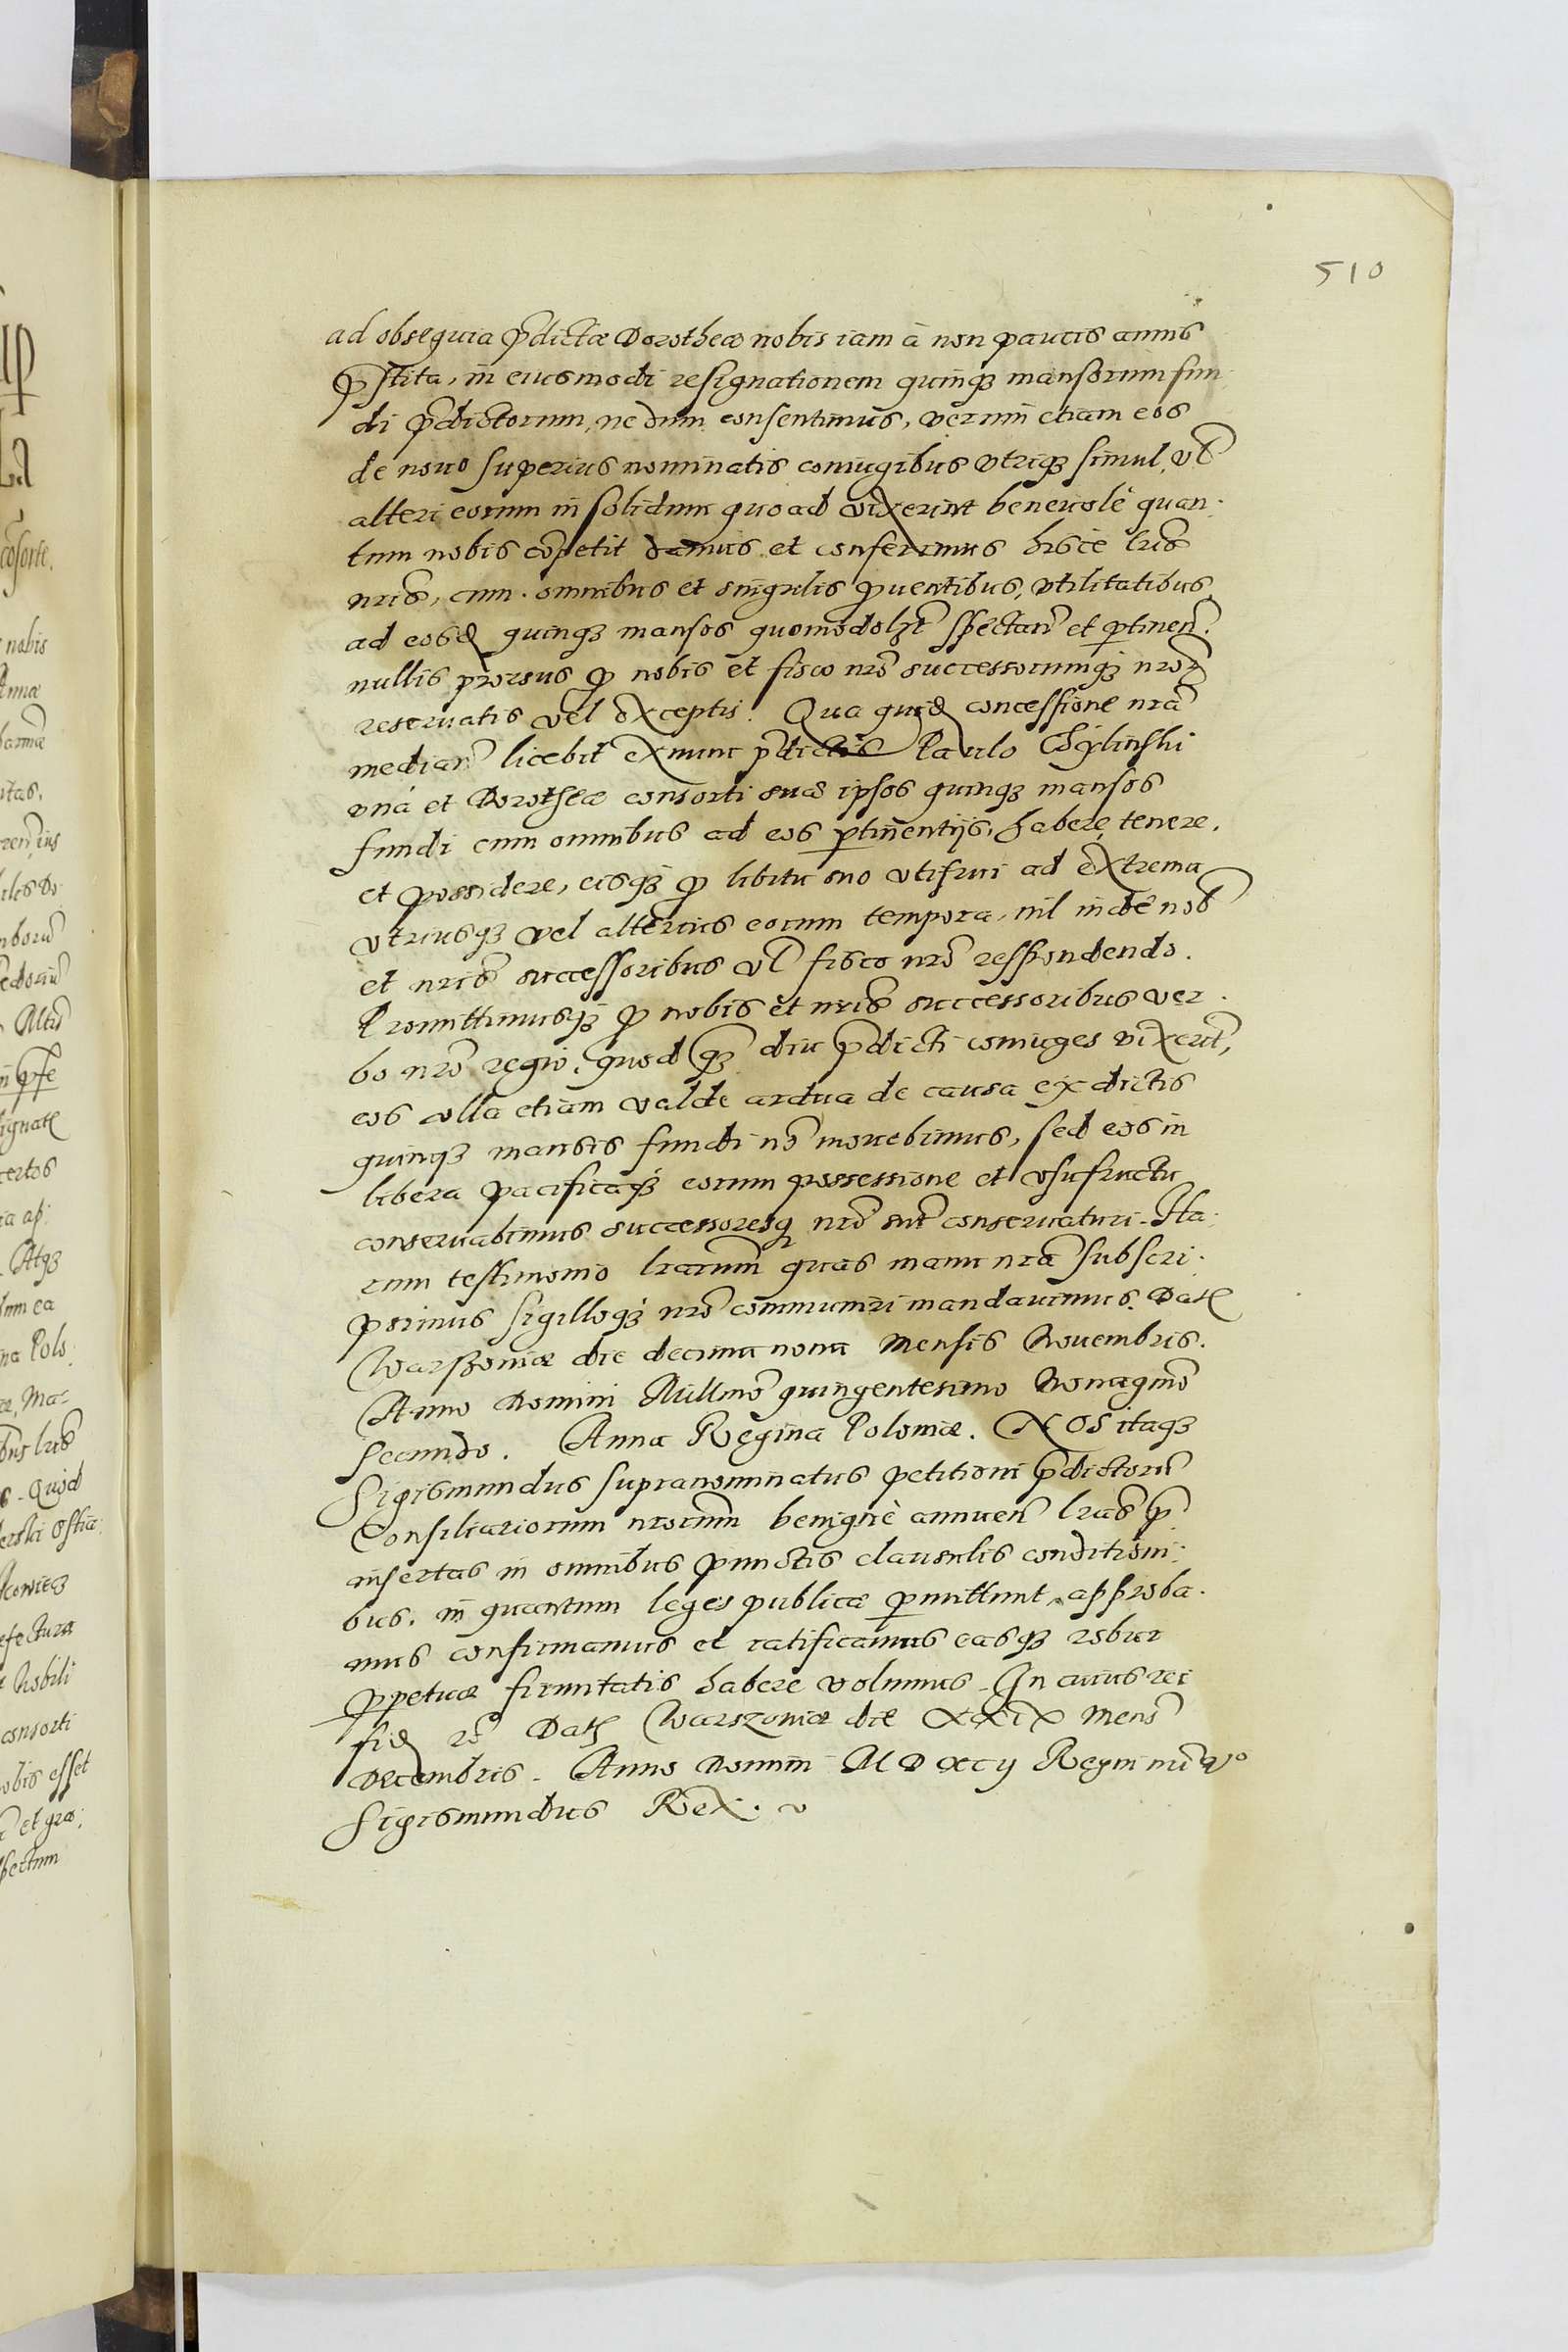 510
ad obsequia p̃dictæ Dorotheæ nobis iam à non paucis annis
p̃stita, in eiusmodi resignationem quinqꝫ mansorum fun
di p̃dictorum, nedum consentimus, verum etiam eos
de nouo superius nominatis coniugibus vtriqꝫ simul, vl̃
alteri eorum in solidum quoad vixerint beneuolè quan.
tum nobis cõpetit damus et conferimus hisce lris̃
nris̃, cum omnibus et singulis ꝓuentibus, vtilitatibus,
ad eosdẽ quinqꝫ mansos quomodolꝫt̃ spectan̄ et ꝑtinen̄.
nullis prorsus ꝓ nobis et fisco nrõ successorumqꝫ nror̃
reseruatis vel exceptis. Qua quidẽ concessione nrã
median̄ licebit ex nunc p̃dictis Paulo Chylinski
vnà et Dorotheæ consorti suæ ipsos quinqꝫ mansos
fundi cum omnibus ad eos ꝑtinentijs, habere, tenere,
et possidere, eisqꝫ ꝓ libitu suo vtifrui ad extrema
vtriusqꝫ vel alterius eorum tempora, nil inde nob̃
et nris̃ successoribus vl̃ fisco nrõ respondendo.
Promittimusqꝫ ꝓ nobis et nris̃ successoribus ver.
bo nrõ regio, quod qꝫ diu p̃dicti coniuges vixerit̃,
eos vlla etiam valde ardua de causa ex dictis
quinqꝫ mansis fundi nõ mouebimus, sed eos in
libera pacificaqꝫ eorum possessione et vsufructu
conseruabimus successoresqꝫ nrĩ sunt conseruaturi. Ha
rum testimonio lrarum̃ quas manu nrã subscri.
psimus sigilloqꝫ nrõ communiri mandauimus. Dat̃
Warszouiæ die decima nona Mensis Nouembris.
Anno Domini Millmõ quingentesimo Nonagmõ
secundo. Anna Regina Poloniæ. NOS itaqꝫ
Sigismundus supranominatus petitioni p̃dictorũ
Consiliariorum nrorum̃ benignè annuen̄ lras̃ p̃
insertas in omnibus punctis clausulis conditioni.
bus, in quantum leges publicæ ꝑmittunt, approba.
mus confirmamus et ratificamus easqꝫ robur
ꝑpetuæ firmitatis habere volumus. In cuius rei
fidẽ rõ Dat̃ Warszouiæ die XXIX Mens̃
Decembris. Anno Domini MDXCij Regni nrĩ Vº
Sigismundus Rex.